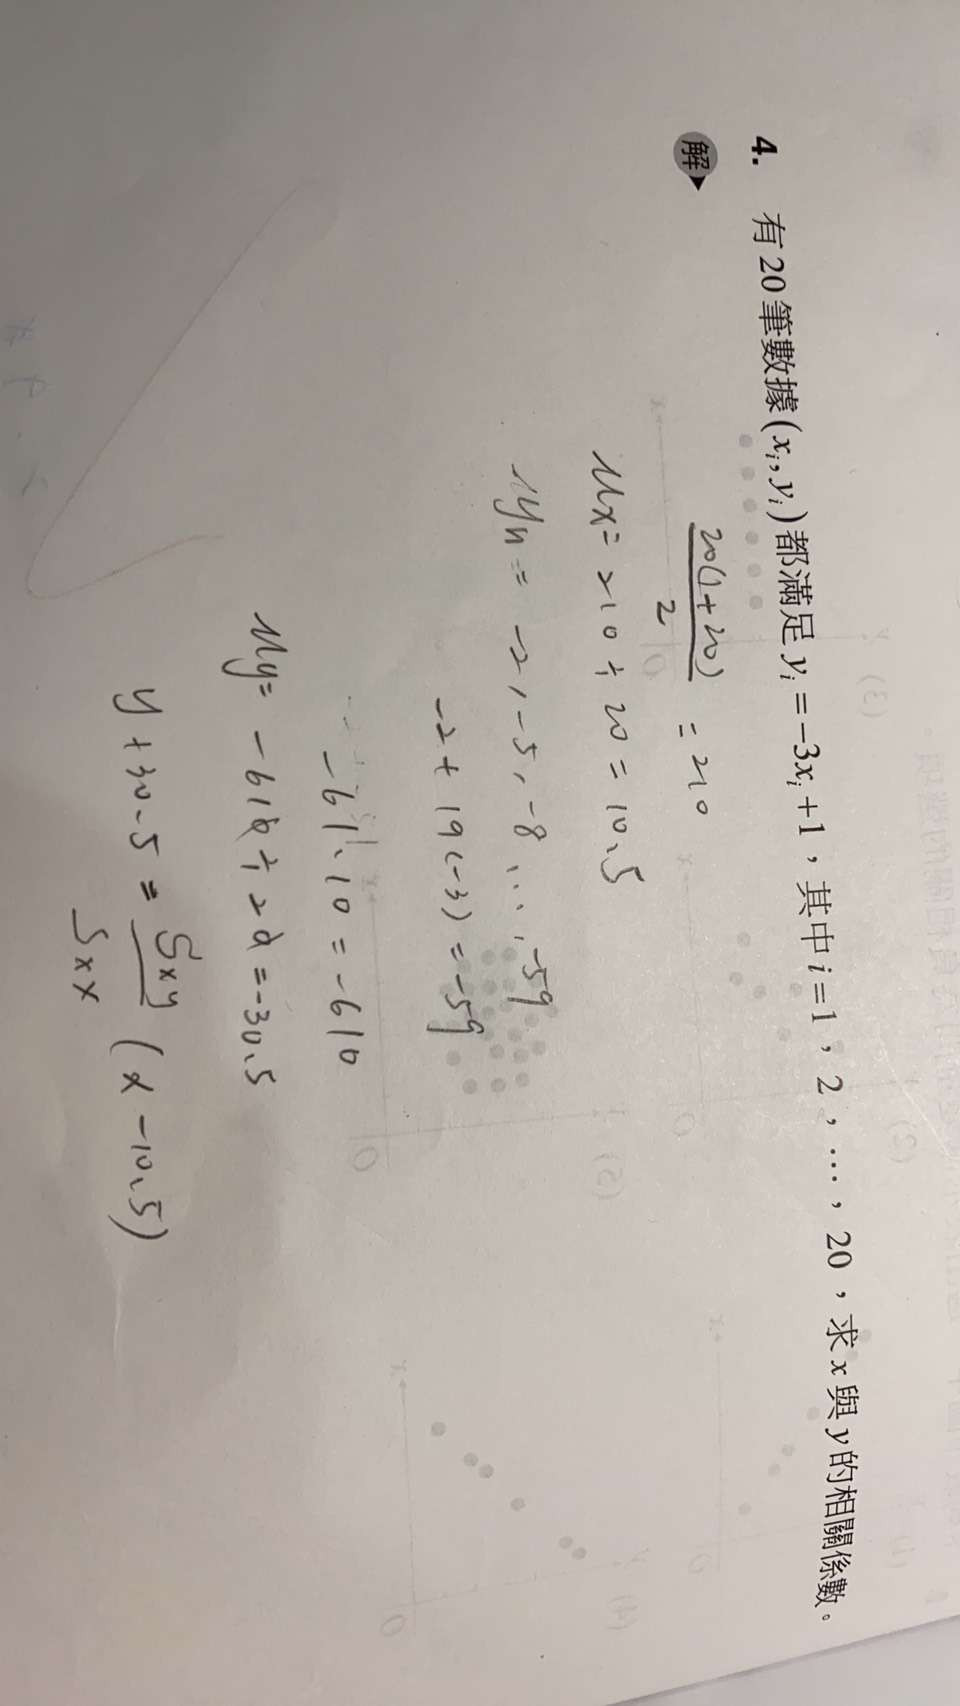 4. 有20筆數據(xᵢ,yᵢ)都滿足yᵢ=−3xᵢ+1，其中i=1，2，…，20，求x與y的相關係數。
解
20(1+20)/2 = 210
μx = 210 ÷ 20 = 10.5
μyn = -2, -5, -8 ..., -59
-2 + 19(-3) = -59
-61·10 = -610
μy = -610 ÷ 20 = -30.5
y + 30.5 = Sxy/Sxx (x - 10.5)